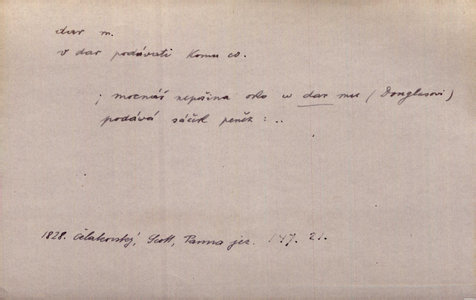 dar m.
v dar podávati komu co.
; mocnář nepřina oko w dar mu (Douglasovi)
podává sáček peněz : ..
1828. Čelakovský, Scott, Panna jez. 147. 21.